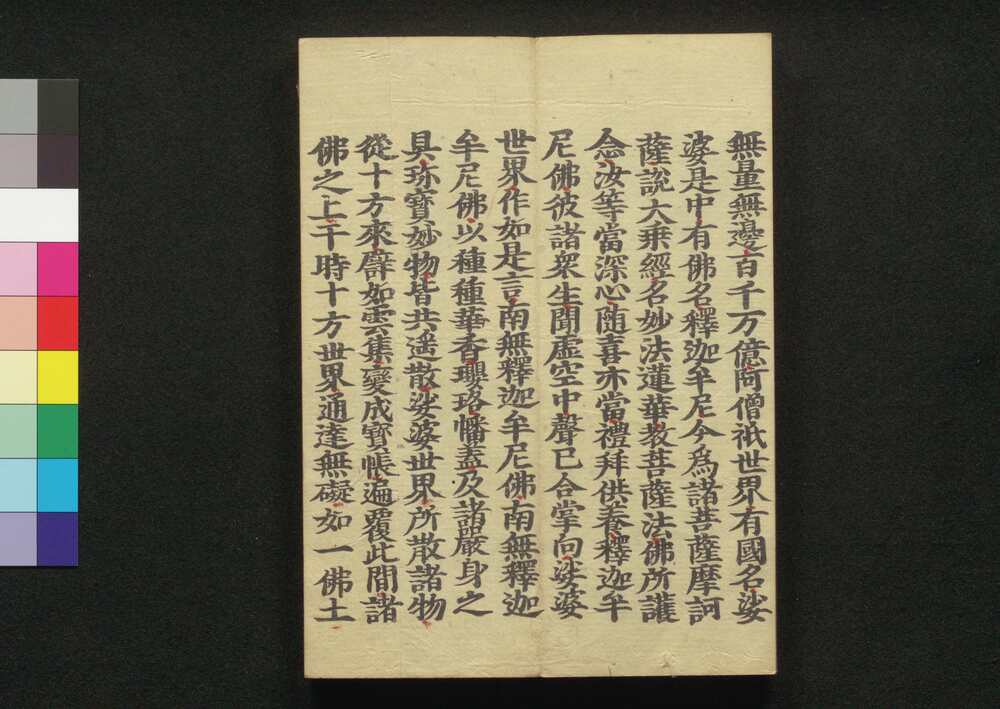 無量無邊百千万億阿僧祇世界有國名娑
婆是中有佛名釋迦牟尼今爲諸菩薩摩訶
薩說大乗經名妙法蓮華教菩薩法佛所護
念汝等當深心随喜亦當禮拜供養釋迦牟
尼佛彼諸衆生聞虛空中聲已合掌向娑婆
世界作如是言南無釋迦牟尼佛南無釋迦
牟尼佛以種種華香瓔珞幡蓋及諸嚴身之
具珎寶妙物皆共遥散娑婆世界所散諸物
從十方來譬如雲集變成寶帳遍覆此間諸
佛之上于時十方世界通達無礙如一佛土